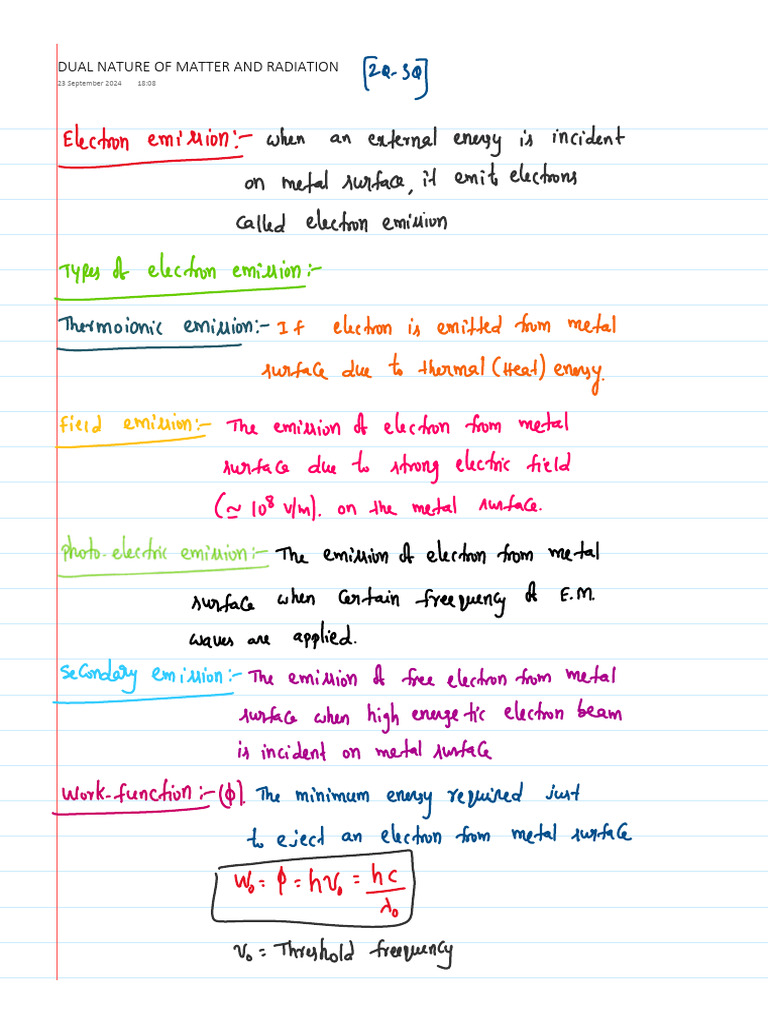 DUAL NATURE OF MATTER AND RADIATION [2Q-3Q]
23 September 2024 18:08
Electron emission:- when an external energy is incident
on metal surface, it emit electrons
called electron emission
Types of electron emission:-
Thermoionic emission:- If electron is emitted from metal
surface due to thermal (Heat) energy.
field emission:- The emission of electron from metal
surface due to strong electric field
(≃ 10⁸ V/m). on the metal surface.
photo-electric emission:- The emission of electron from metal
surface when certain frequency of E.M.
waves are applied.
Secondary emission:- The emission of free electron from metal
surface when high energetic electron beam
is incident on metal surface
Work-function:- (ϕ). The minimum energy required just
to eject an electron from metal surface
W₀ = ϕ = hν₀ = hc/λ₀
ν₀ = Threshold freequency